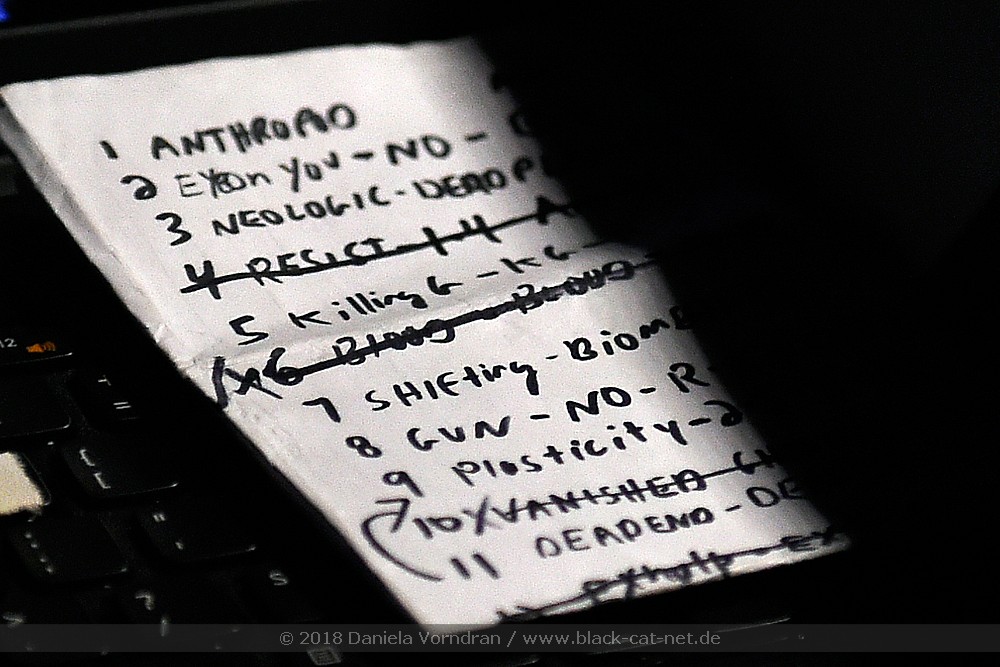 1 ANTHROPO
2 EXON YOU - NO -
3 NEOLOGIC - DEAD P
4 RESIST - 14 A
5 Killing G - KG -
6 Blood - Blood -
7 SHIFting - Biom
8 GUN - NO - R
9 Plasticity - 2
10 VANISHED
11 DEADEND - DE
12
© 2018 Daniela Vorndran / www.black-cat-net.de